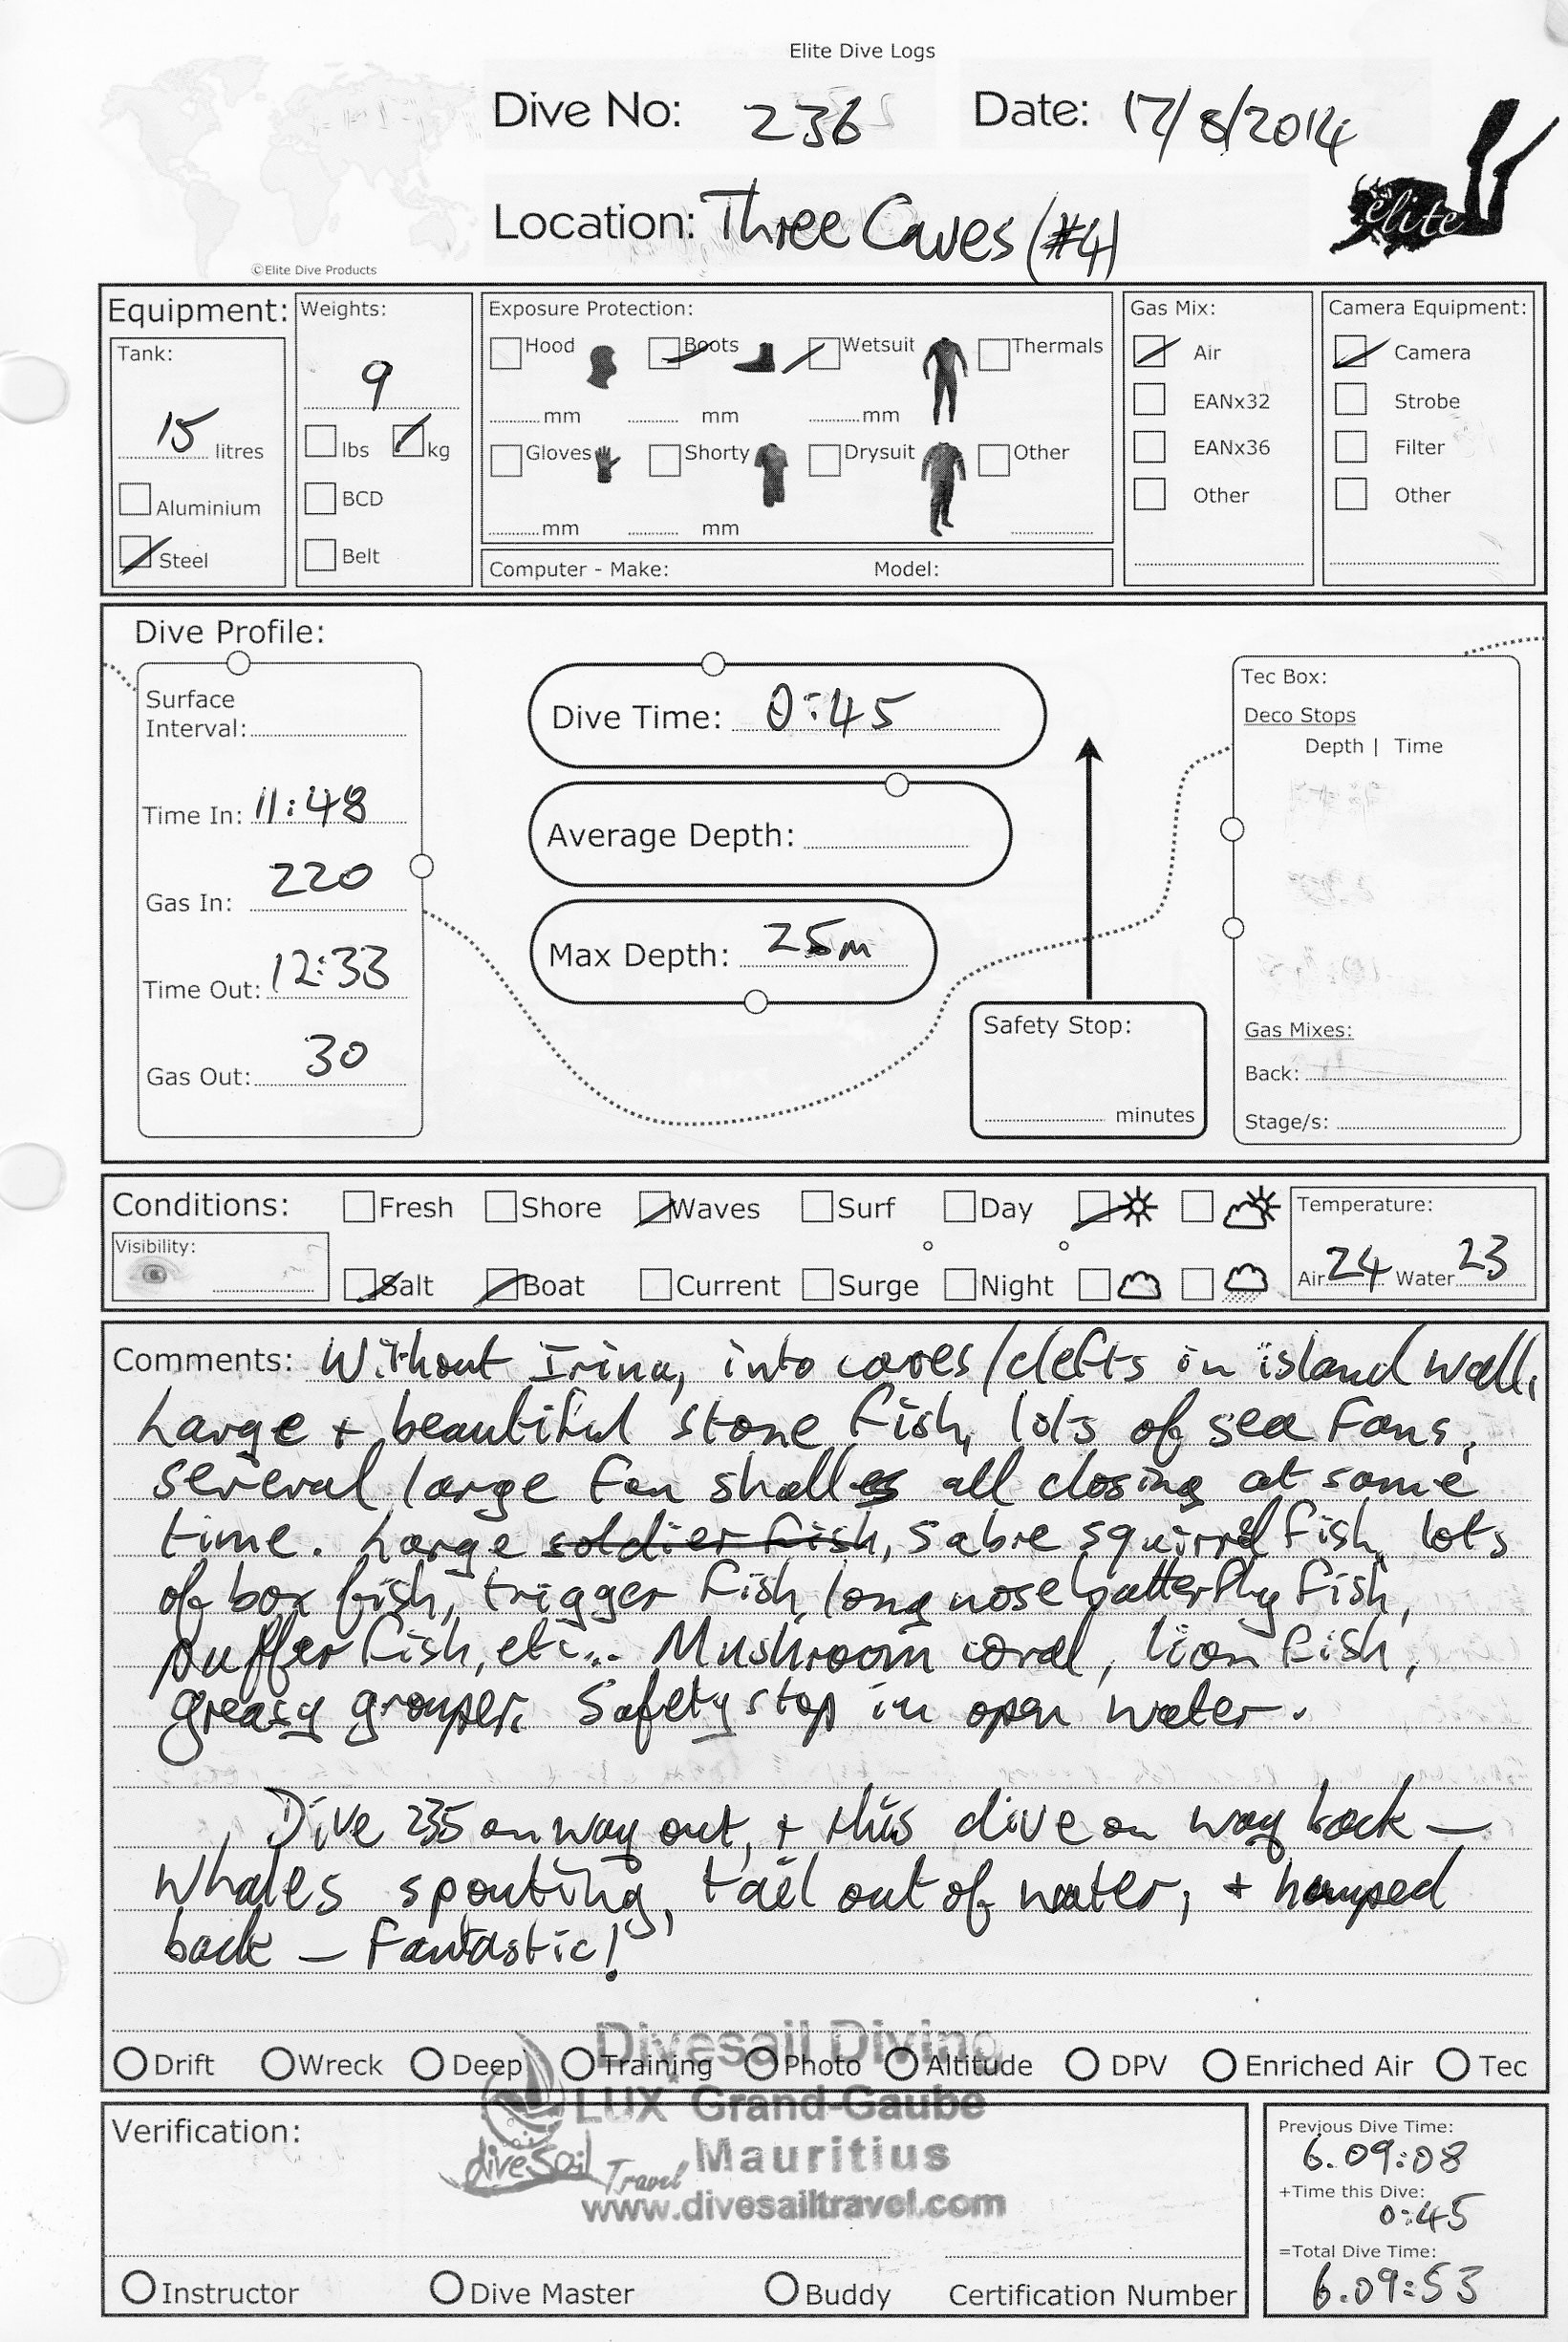 Elite Dive Logs
Dive No: 236 Date: 17/8/2014
Location: Three Caves (#4)
elite
©Elite Dive Products
Equipment: Weights: Exposure Protection: Gas Mix: Camera Equipment:
Tank: Hood Boots Wetsuit Thermals Air Camera
9 mm mm mm EANx32 Strobe
15 litres lbs kg Gloves Shorty Drysuit Other EANx36 Filter
Aluminium BCD mm mm Other Other
Steel Belt Computer - Make: Model:
Dive Profile:
Surface
Interval:
Time In: 11:48
Gas In: 220
Time Out: 12:33
Gas Out: 30
Dive Time: 0:45
Average Depth:
Max Depth: 25m
Safety Stop:
minutes
Tec Box:
Deco Stops
Depth | Time
Gas Mixes:
Back:
Stage/s:
Conditions: Fresh Shore Waves Surf Day Temperature:
Visibility: Salt Boat Current Surge Night Air 24 Water 23
Comments: Without Irina, into caves/clefts in island wall,
Large + beautiful stone fish, lots of sea fans,
several large fan shalles all closing at same
time. Large soldier fish, sabre squirrel fish, lots
of box fish, trigger fish, long nose butterfly fish,
puffer fish, etc... Mushroom coral, lion fish,
greasy grouper. Safety stop in open water.
Dive 235 on way out, + this dive on way back —
whales spouting, tail out of water, + humped
back — Fantastic!
Drift Wreck Deep Training Photo Altitude DPV Enriched Air Tec
Divesail Diving
LUX* Grand-Gaube
Mauritius
diveSail Travel
www.divesailtravel.com
Verification:
Instructor Dive Master Buddy Certification Number
Previous Dive Time:
6.09:08
+Time this Dive:
0:45
=Total Dive Time:
6.09:53